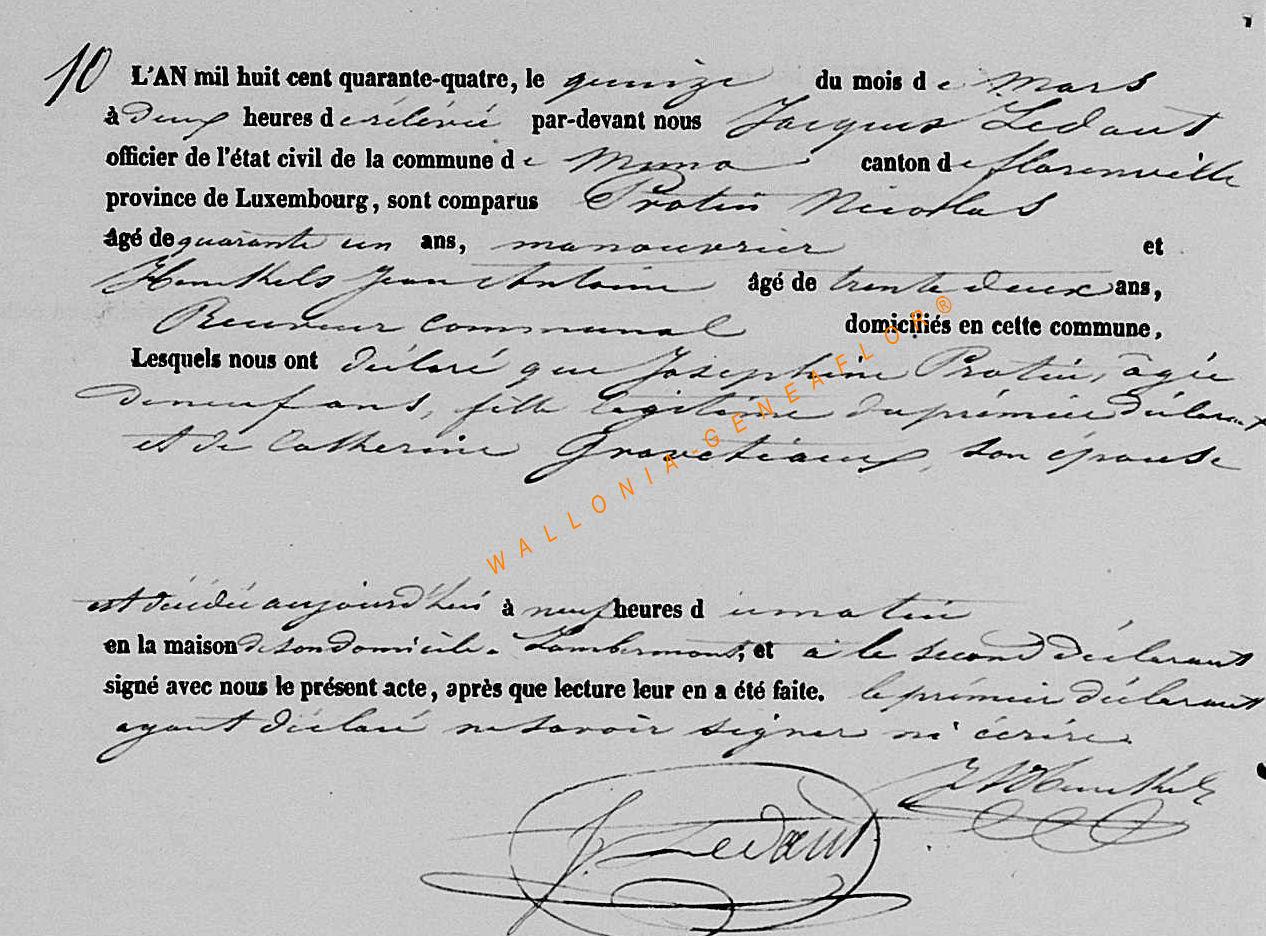 10 L'AN mil huit cent quarante-quatre, le quinze du mois de Mars
à deux heures de rélévée par-devant nous Jacques Ledant
officier de l'état civil de la commune de Muno canton de florenville
province de Luxembourg, sont comparus Protin Nicolas
âgé de quarante un ans, manouvrier et
Jean Antoine âgé de trente deux ans,
Receveur communal domiciliés en cette commune,
Lesquels nous ont déclaré que Joséphine Protin, âgée
de neuf ans, fille légitime du prémier déclarant
et de Catherine son épouse
est décédée aujourd'hui à neuf heures du matin
en la maison de son domicile. Lambermont, et a le second déclarant
signé avec nous le présent acte, après que lecture leur en a été faite. le prémier déclarant
ayant déclaré ne savoir signer ni écrire.
J. Ledant
WALLONIA-GENEAFLOR®